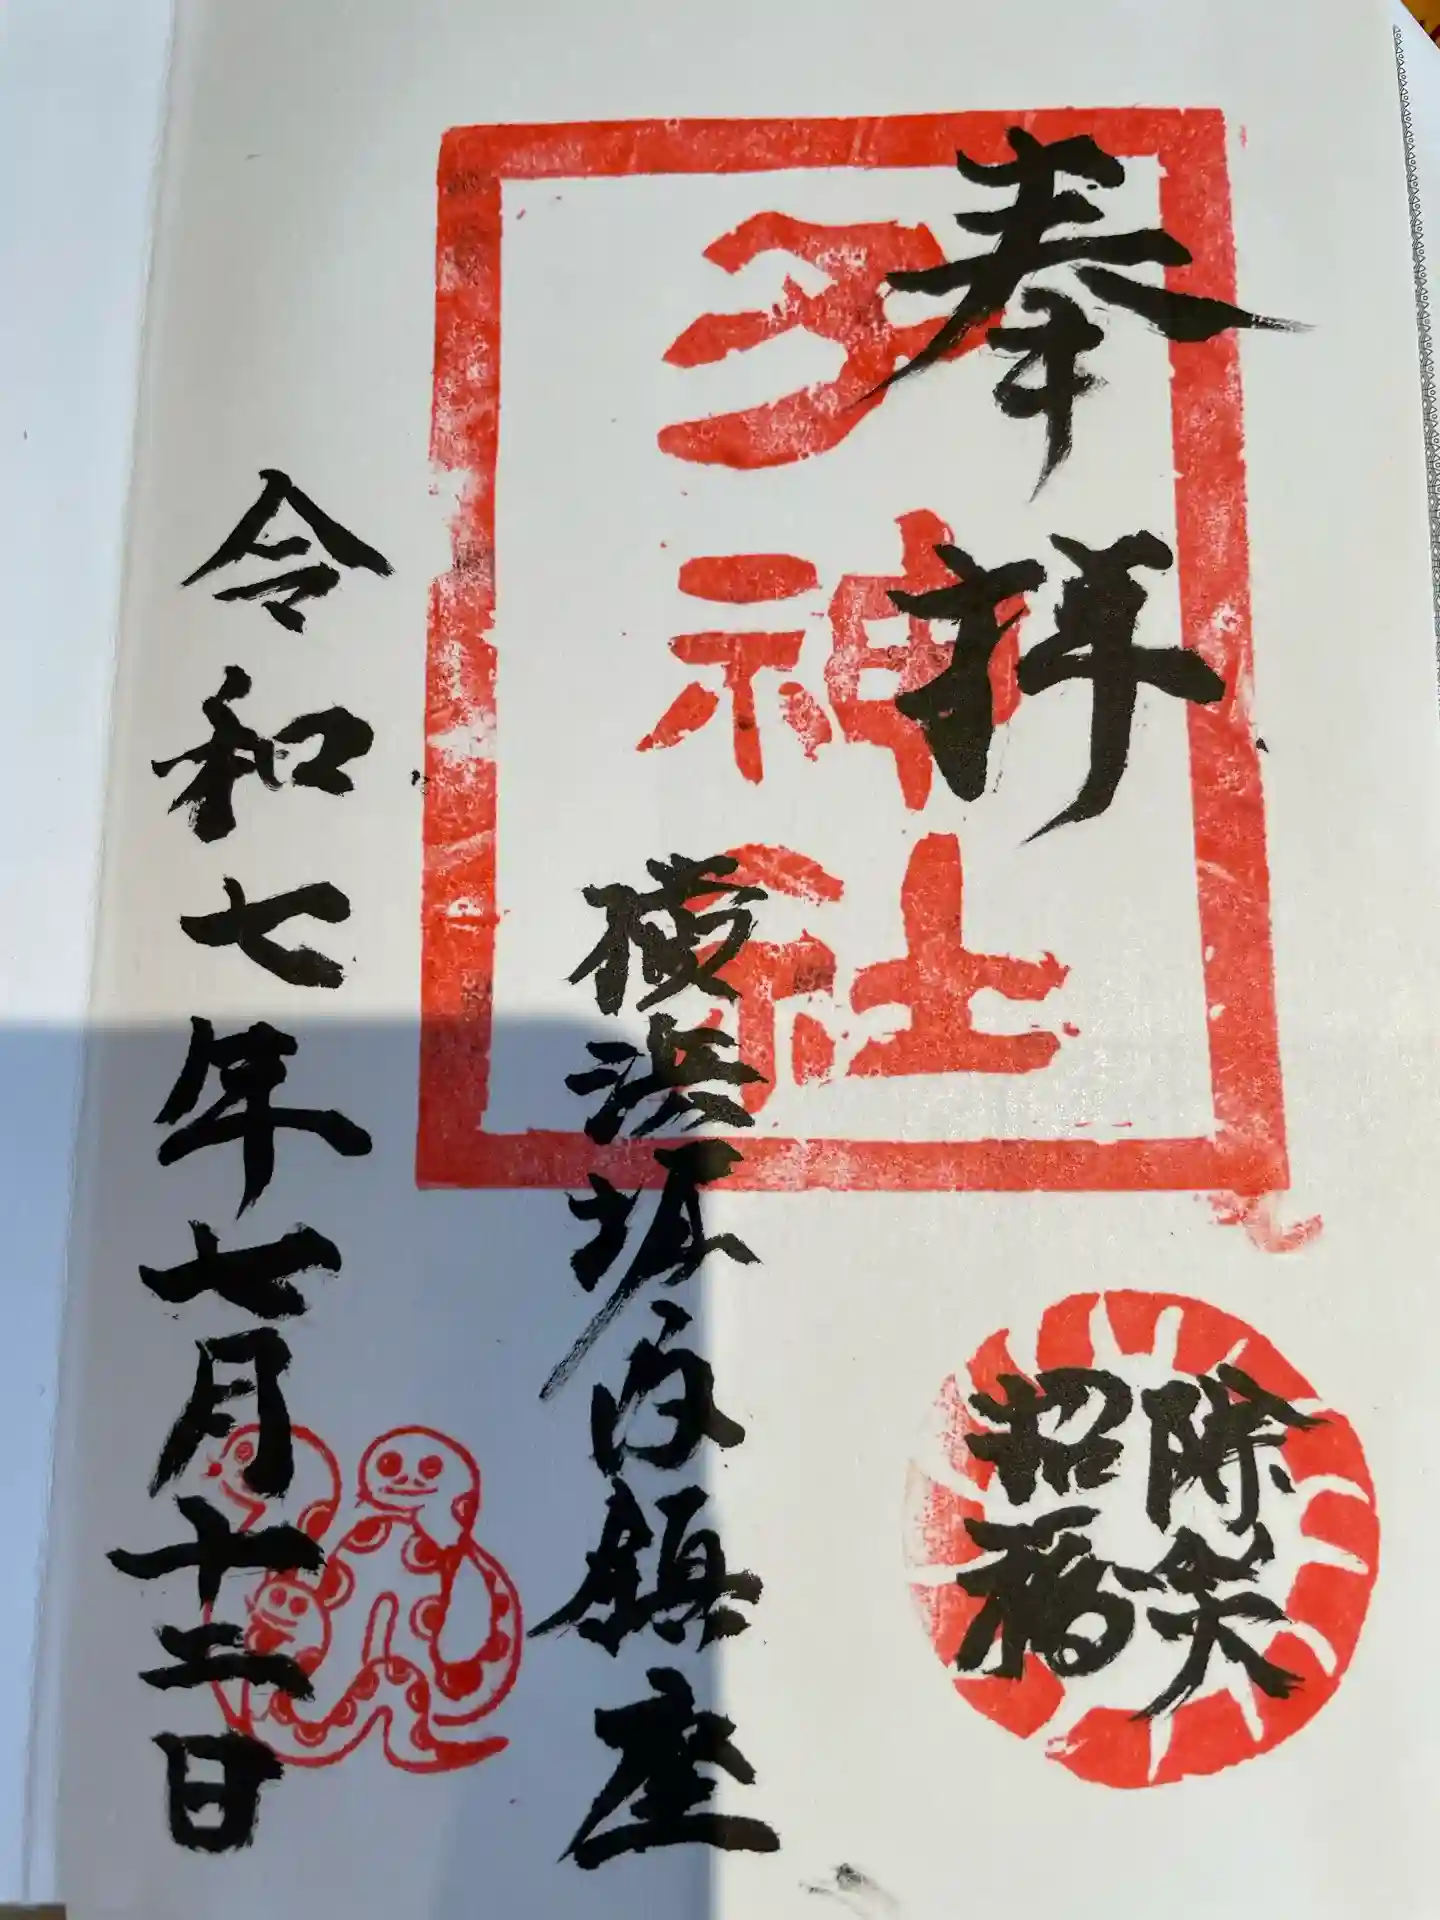 奉拝
除災
招福
多神社
横浜堀内鎮座
令和七年七月十二日